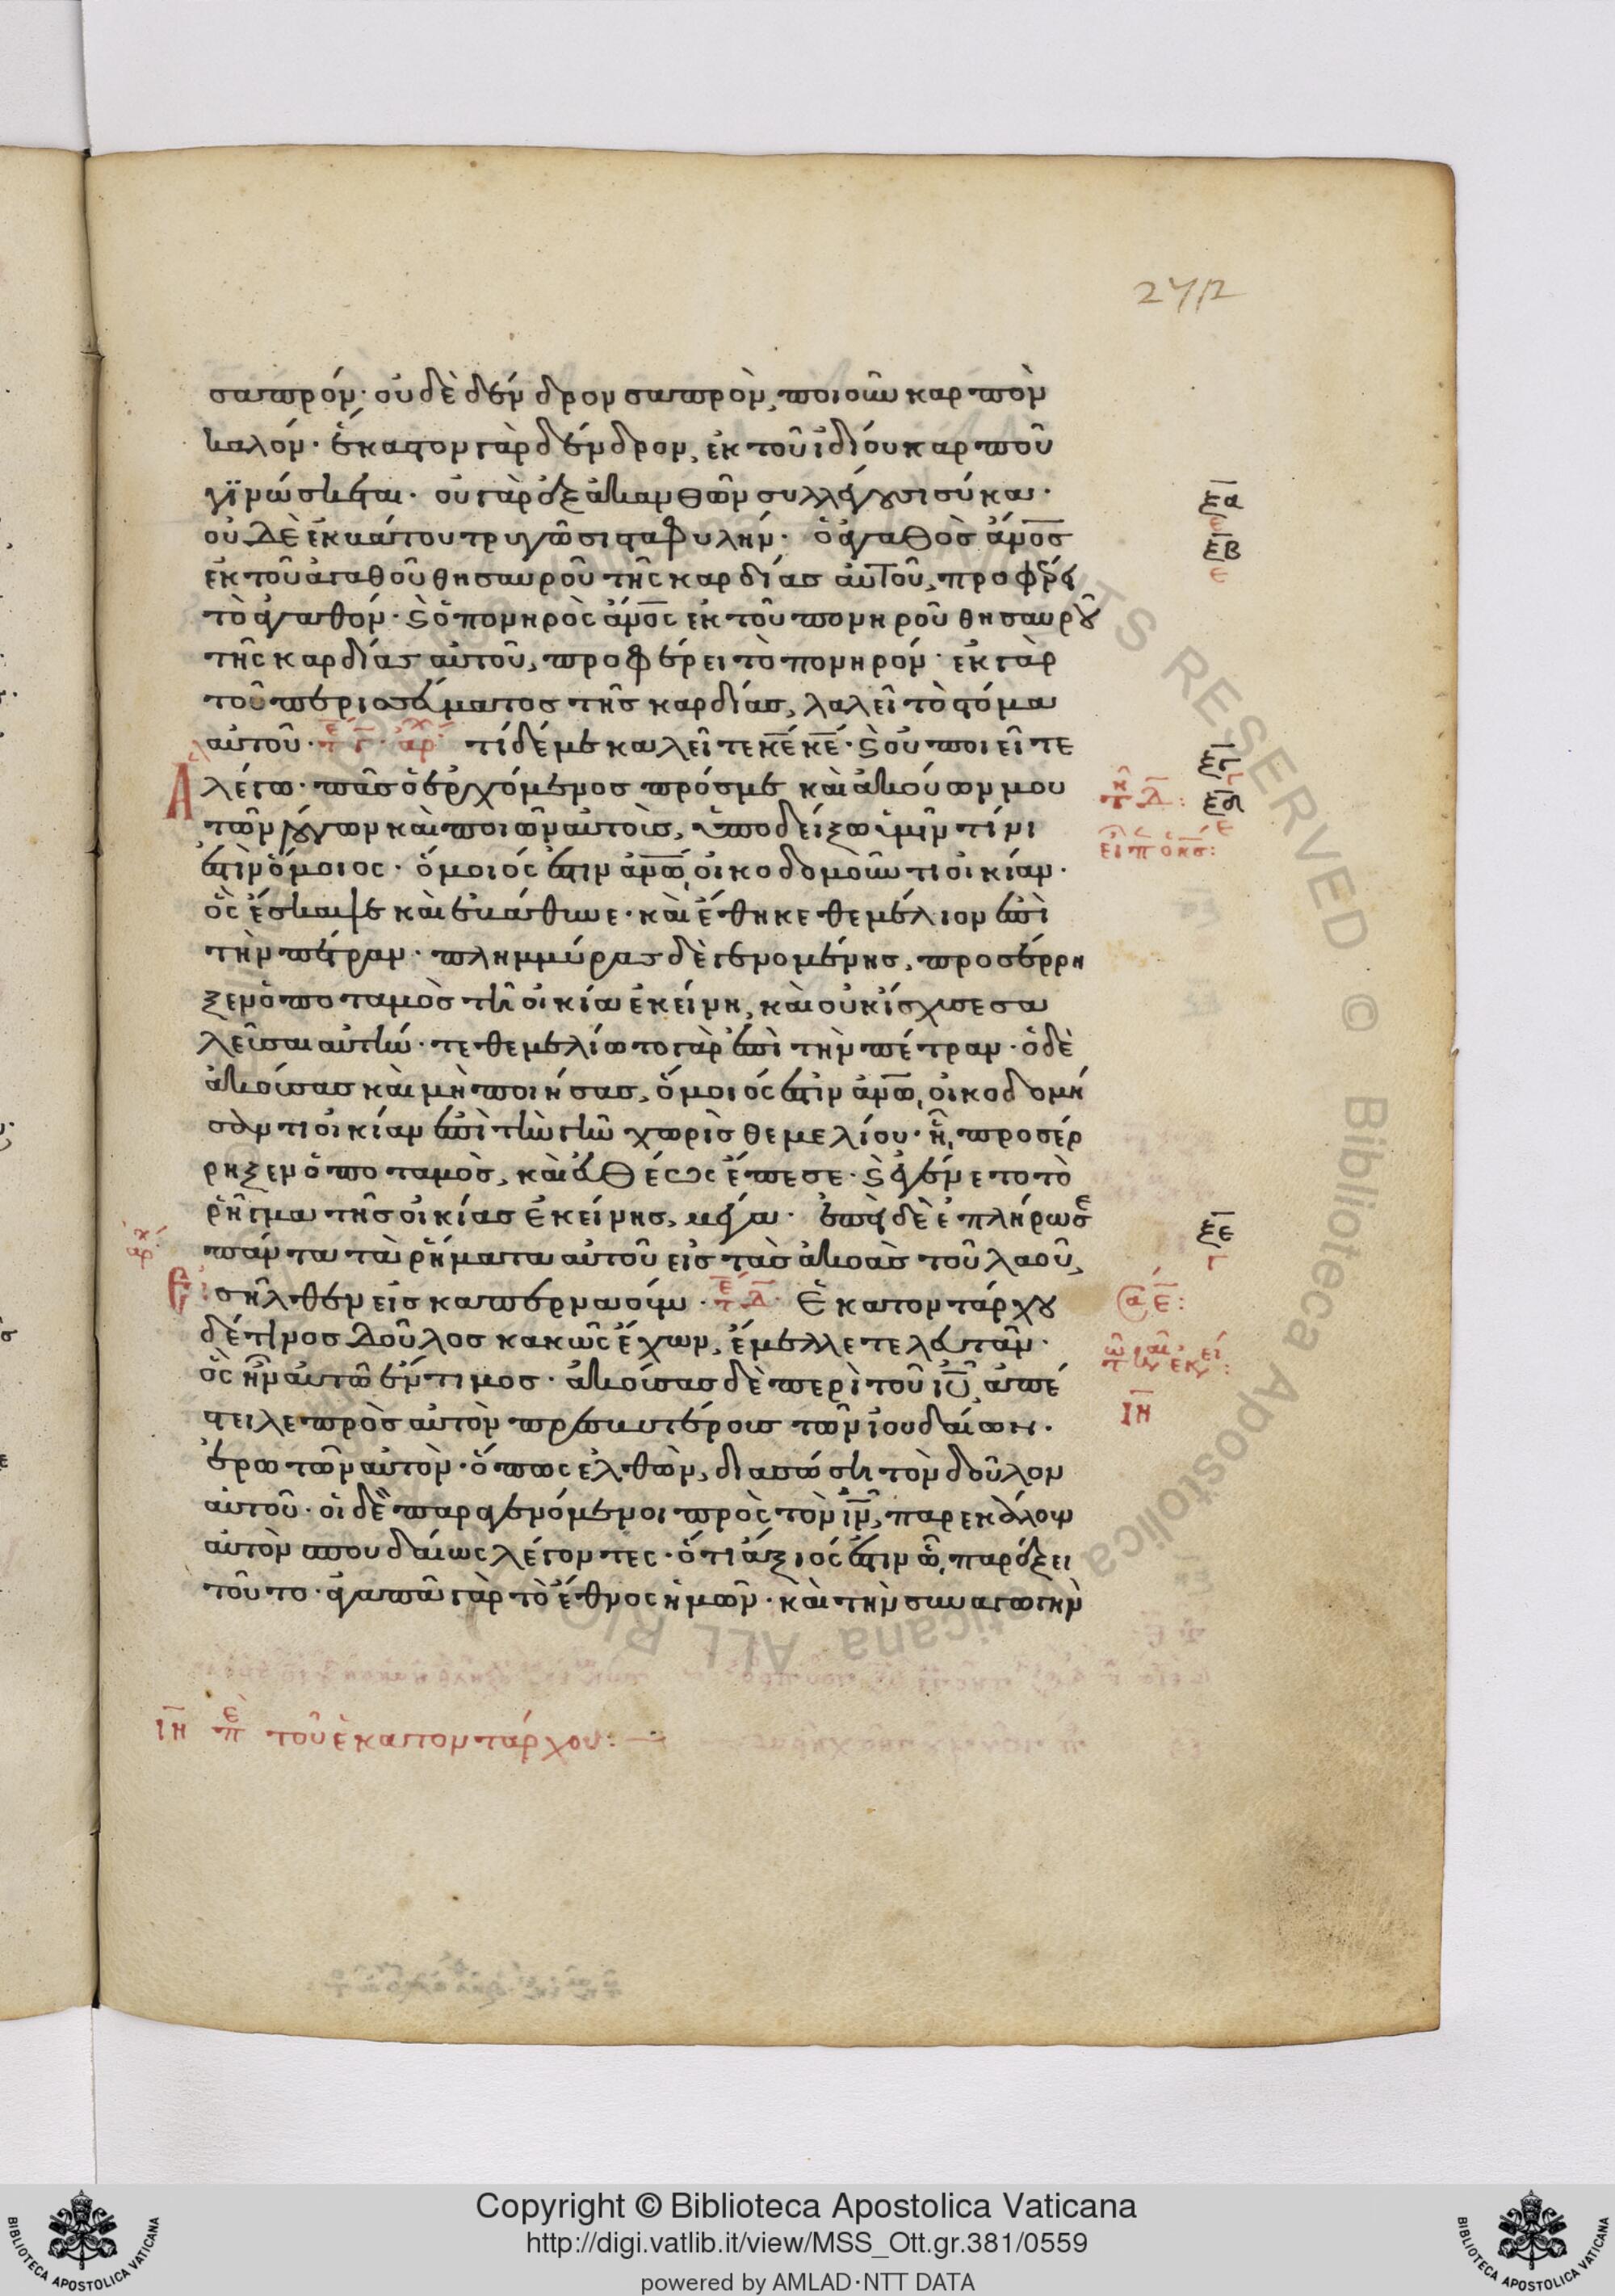 272
σαπρόν· οὐδὲ δένδρον σαπρὸν, ποιοῦν καρπὸν
καλόν· ἕκαστον γὰρ δένδρον, ἐκ τοῦ ἰδίου καρποῦ
γϊνώσκεται· οὐ γὰρ ἐξ ἀκανθῶν συλλέγουσι σύκα·
οὐδὲ ἐκ βάτου τρυγῶσι σταφυλήν· ὁ ἀγαθὸσ ἄν̅ο̅σ̅
ἐκ τοῦ ἀγαθοῦ θησαυροῦ τῆς καρδίασ αὐτοῦ, προφέρει
τὸ ἀγαθόν· ϗ ὁ πονηρὸς ἄν̅ο̅ς̅ ἐκ τοῦ πονηροῦ θησαυροῦ
τῆς καρδίασ αὐτοῦ, προφέρει τὸ πονηρόν· ἐκ γὰρ
τοῦ περισσεύματοσ τῆσ καρδίασ, λαλεῖ τὸ στόμα
αὐτοῦ· τί δέ με καλεῖτε κ̅ε̅ κ̅ε̅· ϗ οὐ ποιεῖτε
ἃ λέγω· πᾶσ ὁ ἐρχόμενοσ πρόσ με καὶ ἀκούων μου
τῶν λόγων καὶ ποιῶν αὐτοὺσ, ὑποδείξω ὑμῖν τίνι
ἐστὶν ὅμοιος· ὅμοιός ἐστιν ἀν̅ω̅, οἰκοδομοῦντι οἰκίαν·
ὃς ἔσκαψε καὶ ἐβάθυνε· καὶ ἔθηκε θεμέλιον ἐπὶ
τὴν πέτραν· πλημμύρασ δὲ γενομένησ, προσέρρη
ξεν ὁ ποταμὸσ τῆ οἰκία ἐκείνη, καὶ οὐκ ἴσχυσε σα
λεῦσαι αὐτήν· τεθεμελίωτο γὰρ ἐπὶ τὴν πέτραν· ὁ δὲ
ἀκούσασ καὶ μὴ ποιήσασ, ὅμοιός ἐστιν ἀν̅ω̅, οἰκοδομή
σαντι οἰκίαν ἐπὶ τὴν γῆν χωρὶσ θεμελίου· ἧ, προσέρ
ρηξεν ὁ ποταμὸσ, καὶ εὐθέως ἔπεσε· ϗ ἐγένετο τὸ
ῥῆγμα τῆσ οἰκίασ ἐκείνησ, μέγα· ἐπεὶ δὲ ἐπλήρωσε
πάντα τὰ ῥήματα αὐτοῦ εἰσ τὰσ ἀκοὰσ τοῦ λαοῦ,
Εἰσῆλθεν εἰσ καπερναούμ· Ἑκατοντάρχου
δέ τινοσ δοῦλοσ κακῶς ἔχων, ἔμελλε τελευτᾶν·
ὃς ἦν αὐτῶ ἔντιμοσ· ἀκούσασ δὲ περὶ τοῦ ἰ̅υ̅, ἀπέ
στειλε πρὸσ αὐτὸν πρεσβυτέρουσ τῶν ἰουδαίων·
ἐρωτῶν αὐτὸν· ὅπως ἐλθὼν, διασώση τὸν δοῦλον
αὐτοῦ· οἱ δὲ παραγενόμενοι πρὸς τὸν ἰ̅ν̅, παρεκάλουν
αὐτὸν σπουδαίως λέγοντες· ὅτι ἄξιός ἐστιν ὧ, παρέξει
τοῦτο· ἀγαπᾶ γὰρ τὸ ἔθνος ἡμῶν· καὶ τὴν συναγωγὴν
ξ̅α̅
ξ̅β̅
ξ̅γ̅
ξ̅δ̅
ξ̅ε̅
ι̅η̅
ι̅η̅ π τοῦ ἑκατοντάρχου:
Copyright © Biblioteca Apostolica Vaticana
http://digi.vatlib.it/view/MSS_Ott.gr.381/0559
powered by AMLAD·NTT DATA